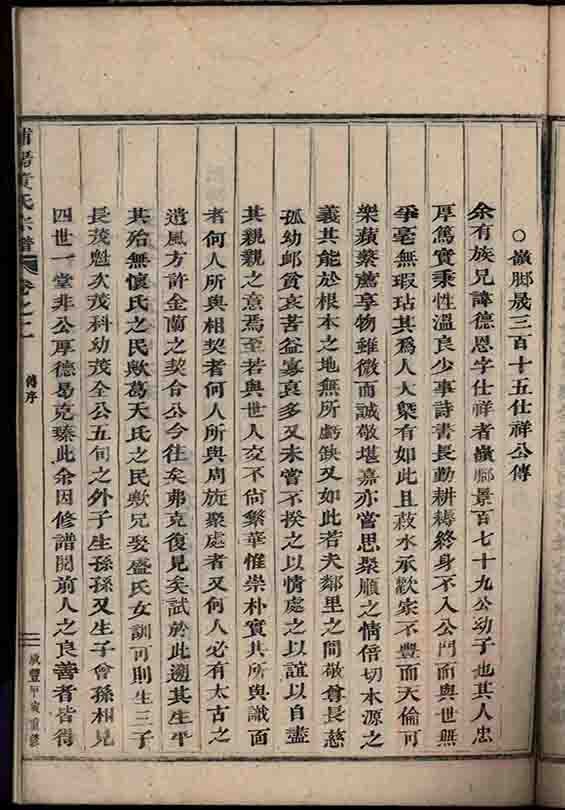 ○嶺腳晟三百十五仕祥公傳
余有族兄諱德恩字仕祥者嶺腳景百七十九公幼子也其人忠
厚篤實秉性溫良少事詩書長勤耕耨終身不入公門而與世無
爭毫無瑕玷其為人大槩有如此且菽水承歡家不豐而天倫可
樂蘋蘩薦享物雖微而誠敬堪嘉亦嘗思聚順之情倍切本源之
義其能於根本之地無所虧缺又如此若夫鄰里之間敬尊長慈
孤幼䘏貧哀苦益寡裒多又未嘗不揆之以情處之以誼以自盡
其親親之意焉至若與世人交不尙繁華惟崇朴實其所與識面
者何人所與相契者何人所與周旋聚處者又何人必有太古之
遺風方許金蘭之契合公今往矣弗克復見矣試於此遡其生平
其殆無懷氏之民歟葛天氏之民歟兄娶盛氏女訓可則生三子
長茂魁次茂科幼茂全公五旬之外子生孫孫又生子會孫相見
四世一堂非公厚德曷克臻此余因修譜閱前人之良善者皆得
黃氏宗譜
卷之二
傳序
咸豐甲寅重修